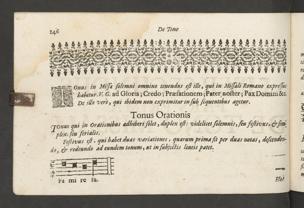 246
De Tono
TOnus in Missa solemni omnino tenendus est ille, qui in Missali Romano expressus
habatur. V. G. ad Gloria; Credo; Præfationem; Pater noster; Pax Domini &c.
De illo verò, qui ibidem non exprimitur in sub sequentibus agetur.
Tonus Orationis
TOnus qui in Orationibus adhiberi solet, duplex est: videlicet solemnis, seu festivus, & sim-
plex seu ferialis.
Festivus est, qui habet duas variationes, quarum prima fit per duas notas, descenden-
do, & redeundo ad eundem tonum, ut in subjectis lineis patet.
Fa mi re fa.